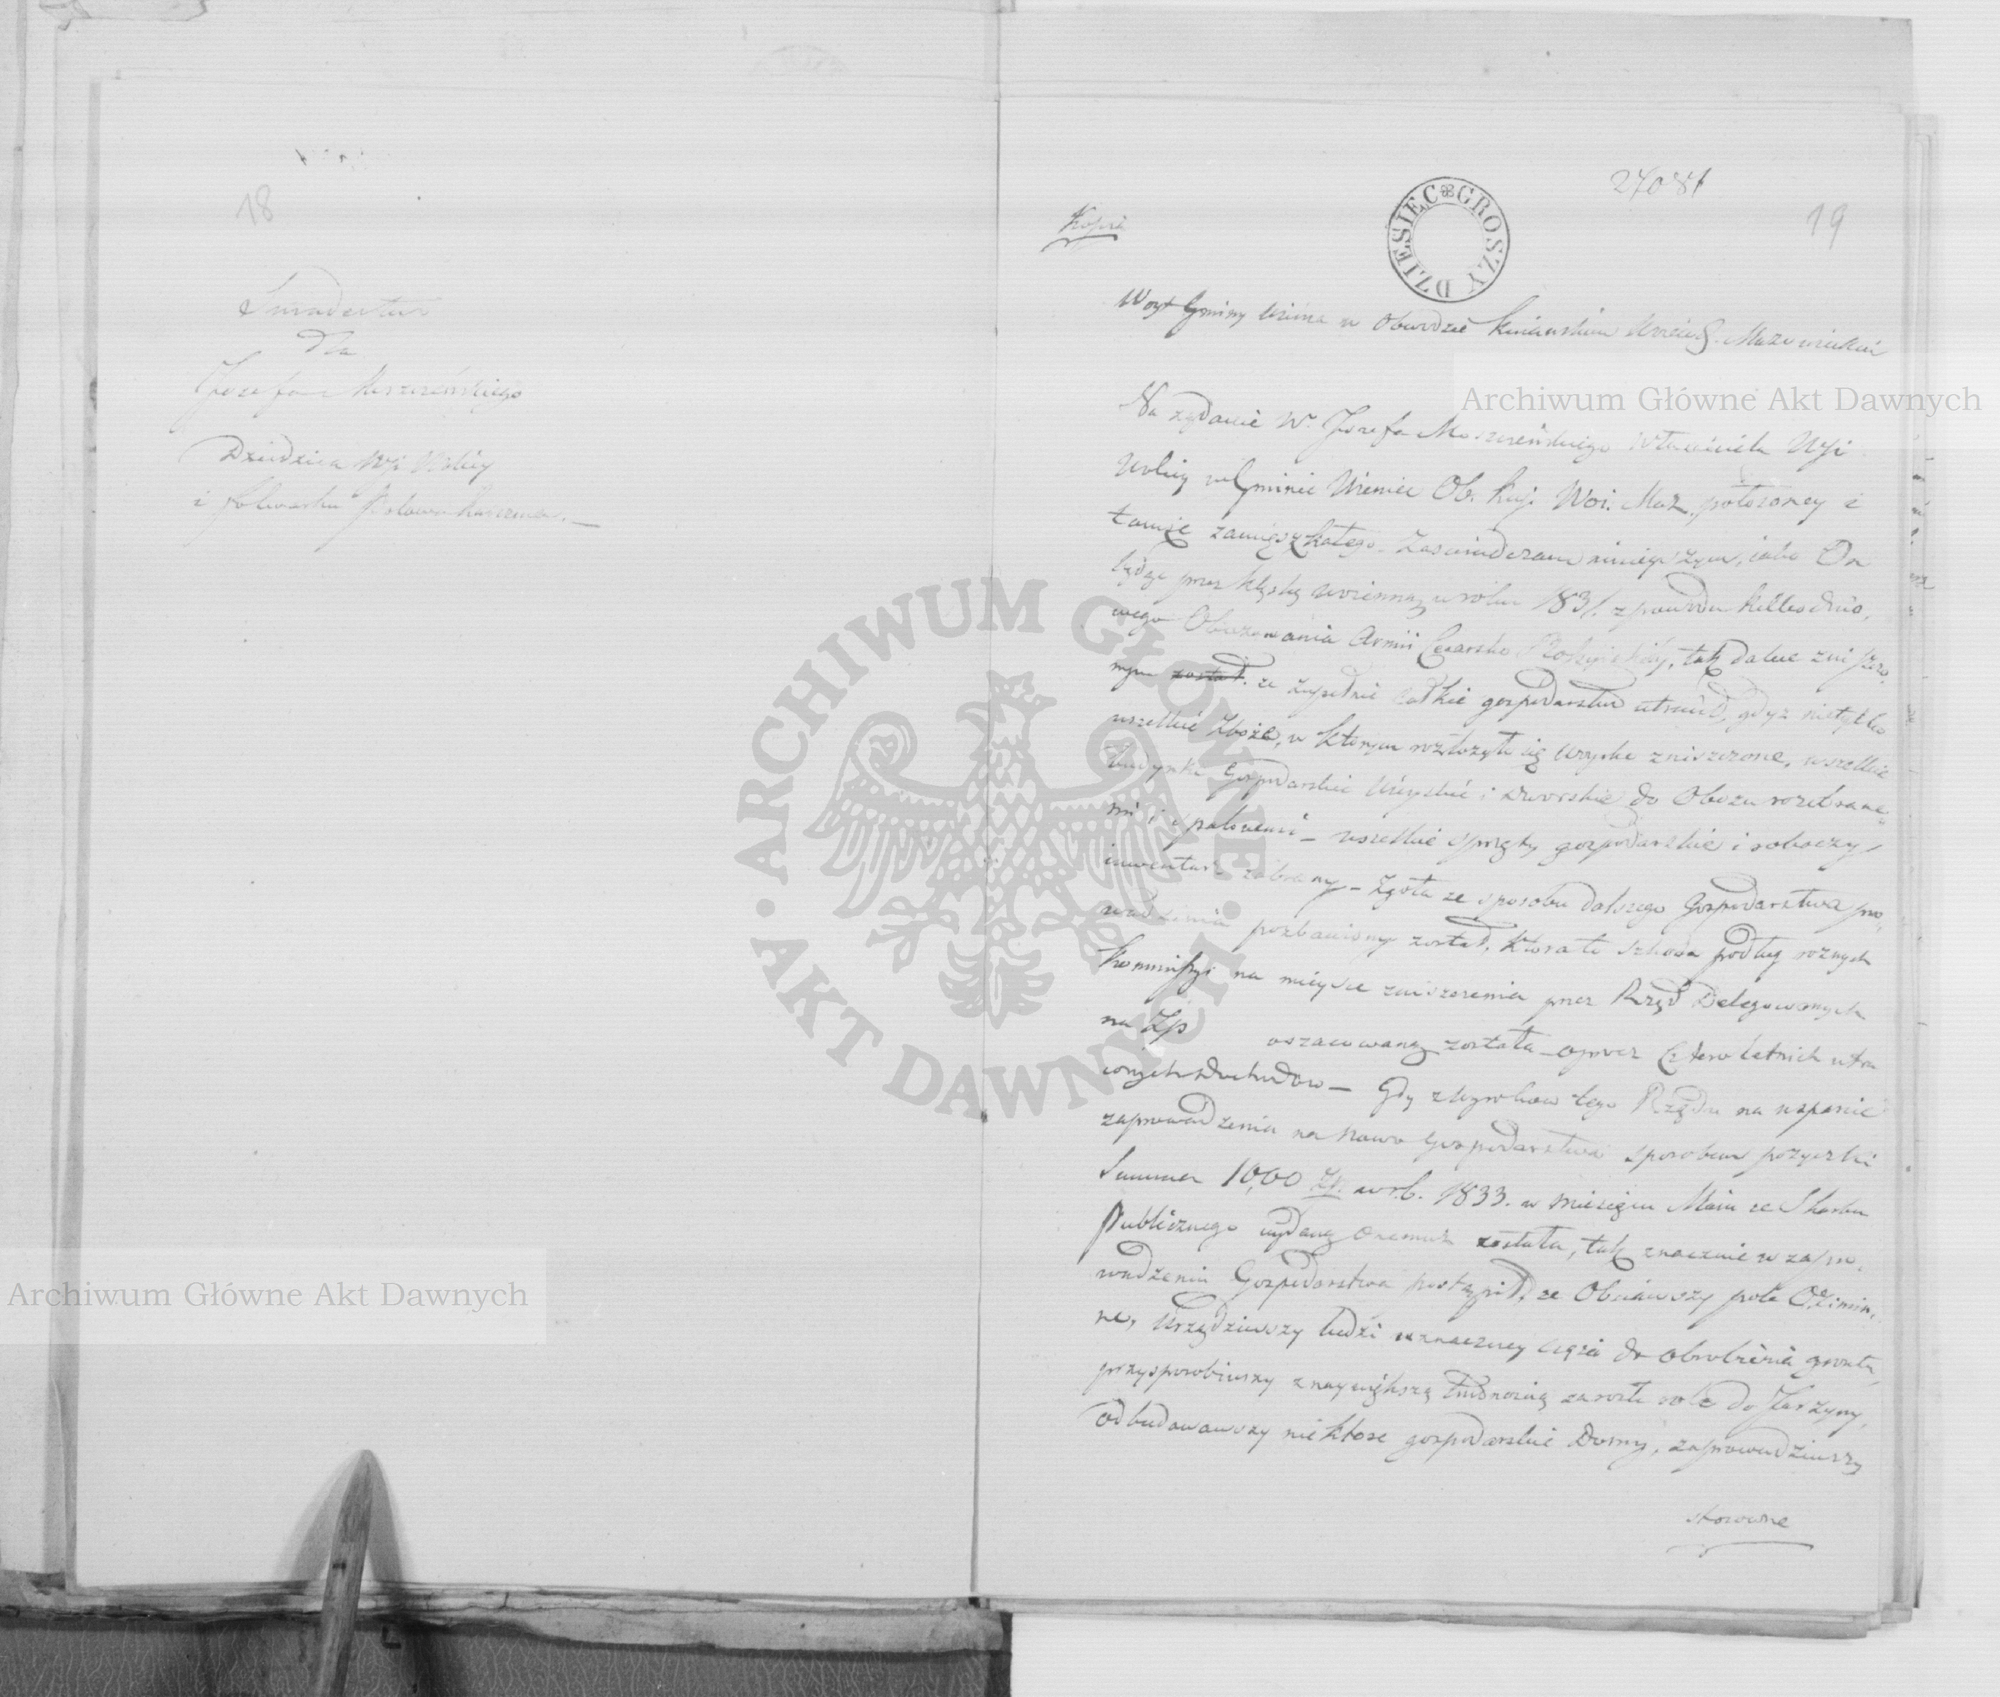 18
Świadectwo
dla
Jozefa Moszczeńskiego
Dziedzica Wsi Wolicy
i folwarku
27081
19
Kopia
DZIESIĘC GROSZY
Woyt Gminy w Obwodzie Kuiawskim Mazowieckim
Na żądanie W. Jozefa Moszczeńskiego Własciciela Wsi
Wolicy w Gminie Wieniec Ob. Kuj. Woi. Maz. położoney i
tamże zamieszkałego. Zaswiadczam ninieyszym, iako On
będąc przez klęskę woienną w roku 1831. z powodu kilkodnio,
wego Obozowania Armii Cesarsko Rossyiskiéy, tak dalece zniszczo,
nym został. że zupełnie całkie gospodarstwo utracił, gdyż nietylko
wszelkie Zboże, w ktorym rozłożyło się woysko zniszczone, wszelkie
budynki Gospodarskie Wieyskie i Dworskie do Obozu rozebrane,
mi i spalonemi – wszelkie sprzęty gospodarskie i roboczy
inwentarz zabrany – Zgoła ze sposobu dalszego Gospodarstwa pro,
wadzenia pozbawiony został, ktora to szkoda podług roznych
Kommissyi na mieysce zniszczenia przez Rząd Delegowanych
na Zp oszacowaną została oprocz Cztero letnich utra
conych dochodow – Gdy z tego Rządu na wsparcie
zaprowadzenia na nowo Gospodarstwa sposobem pożyczki
Summa 1000 Zp. w r.b. 1833. w miesiącu Maiu ze Skarbu
Publicznego wydaną onemuż została, tak znacznie w zapro,
wadzeniu Gospodarstwa postąpił, że Obsiawszy pole Ozimin,
ne, Urządziwszy ludzi w znaczney części do obrobienia gruntu
przysposobiwszy z naywiększą trudnoscią zarosłe role do Jarzyny,
odbudowawszy niektore gospodarskie Domy, zaprowadziwszy
stosowne
Archiwum Główne Akt Dawnych
Archiwum Główne Akt Dawnych
ARCHIWUM GŁÓWNE · AKT DAWNYCH ·